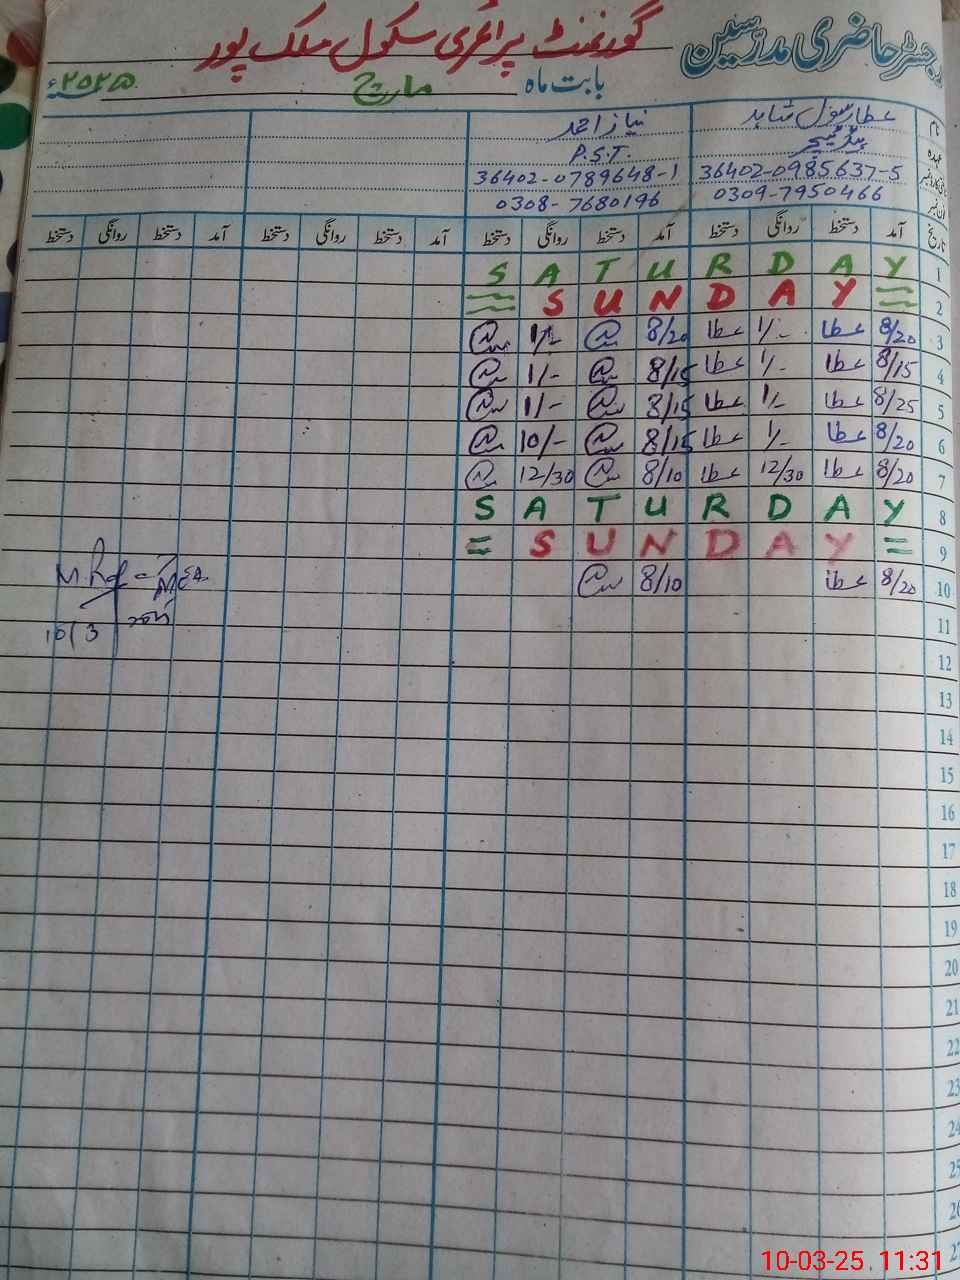 رجسٹر حاضری مدرسین
گورنمنٹ پرائمری سکول ملک پور
بابت ماہ مارچ ۲۰۲۵ء
نام عطا رسول شاہد نیاز احمد
عہدہ ہیڈ ٹیچر P.S.T.
36402-0985637-5 36402-0789648-1
0309-7950466 0308-7680196
تاریخ آمد دستخط روانگی دستخط آمد دستخط روانگی دستخط آمد دستخط روانگی دستخط آمد دستخط روانگی دستخط
1 S A T U R D A Y
2 = S U N D A Y =
3 8/20 عطا 1/- عطا 8/20 1/-
4 8/15 عطا 1/- عطا 8/15 1/-
5 8/25 عطا 1/- عطا 8/15 1/-
6 8/20 عطا 1/- عطا 8/15 10/-
7 8/20 عطا 12/30 عطا 8/10 12/30
8 S A T U R D A Y
9 = S U N D A Y =
10 8/20 عطا 8/10
10/3
11
12
13
14
15
16
17
18
19
20
21
22
23
24
25
26
27
10-03-25 11:31